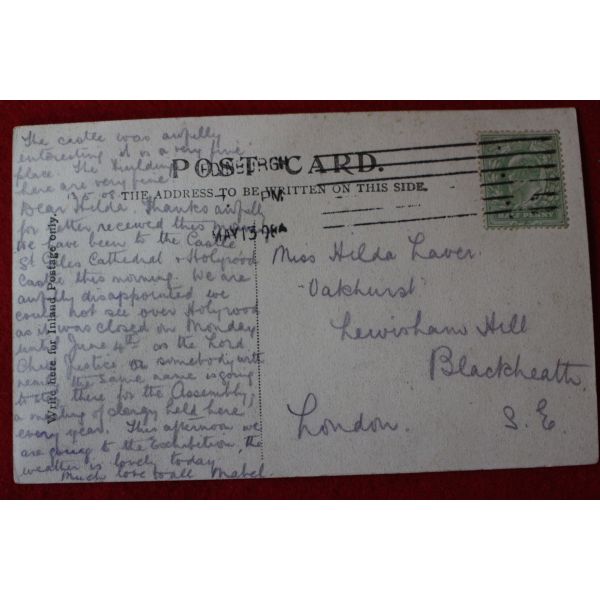 The castle was awfully
interesting it is a very fine
place. The buildings
here are very fine
POST CARD.
EDINBURGH
THE ADDRESS TO BE WRITTEN ON THIS SIDE.
PM
MAY 13 08
HALF PENNY
Write here for Inland Postage only.
Dear Hilda. Thanks awfully
for letter received this
We have been to the Castle
St Giles Cathedral & Holyrood
Castle this morning. We are
awfully disappointed we
could not see over Holyrood
as it was closed on Monday
until June 4th as the Lord
Chief Justice or somebody with
the same name is going
to stay there for the Assembly,
a meeting of clergy held here
every year. This afternoon we
are going to the Exhibition, the
weather is lovely today.
Much love to all Mabel.
Miss Hilda Laver
Oakhurst
Lewisham Hill
Blackheath
London. S.E